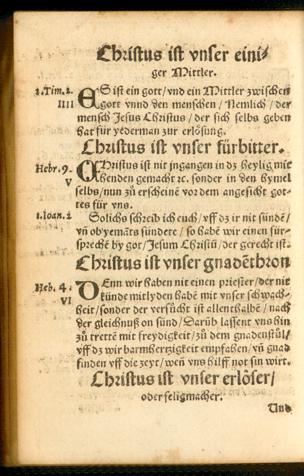 Christus ist vnser eini⸗
ger Mittler.
1.Tim.2.
IIII
ES ist ein gott/vnd ein Mittler zwischen
gott vnnd den menschen/Nemlich/der
mensch Jesus Christus/der sich selbs geben
hat für yederman zur erlösung.
Christus ist vnser fürbitter.
Hebr.9.
V
CHristus ist nit yngangen in dz heylig mit
henden gemacht ꝛc. sonder in den hymel
selbs/nun zů erscheinē vor dem angesicht got⸗
tes für vns.
1.Ioan.2
Solichs schreib ich euch/vff dz ir nit sündē/
vñ ob yemāts sündete/so habē wir einen für⸗
sprechē by got/Jesum Christū/der gerecht ist.
Christus ist vnser gnadēthron
Heb. 4.
VI
DEnn wir haben nit einen priester/der nit
künde mitlyden habē mit vnser schwach⸗
heit/sonder der versůcht ist allenthalbē/nach
der gleichnuß on sünd/Darūb lassent vns hin
zů trettē mit freydigkeit/zů dem gnadenstůl/
vff dz wir barmhertzigkeit empfahen/vñ gnad
finden vff die zeyt/weñ vns hilff not sin wirt.
Christus ist vnser erlöser/
oder seligmacher.
Vnd